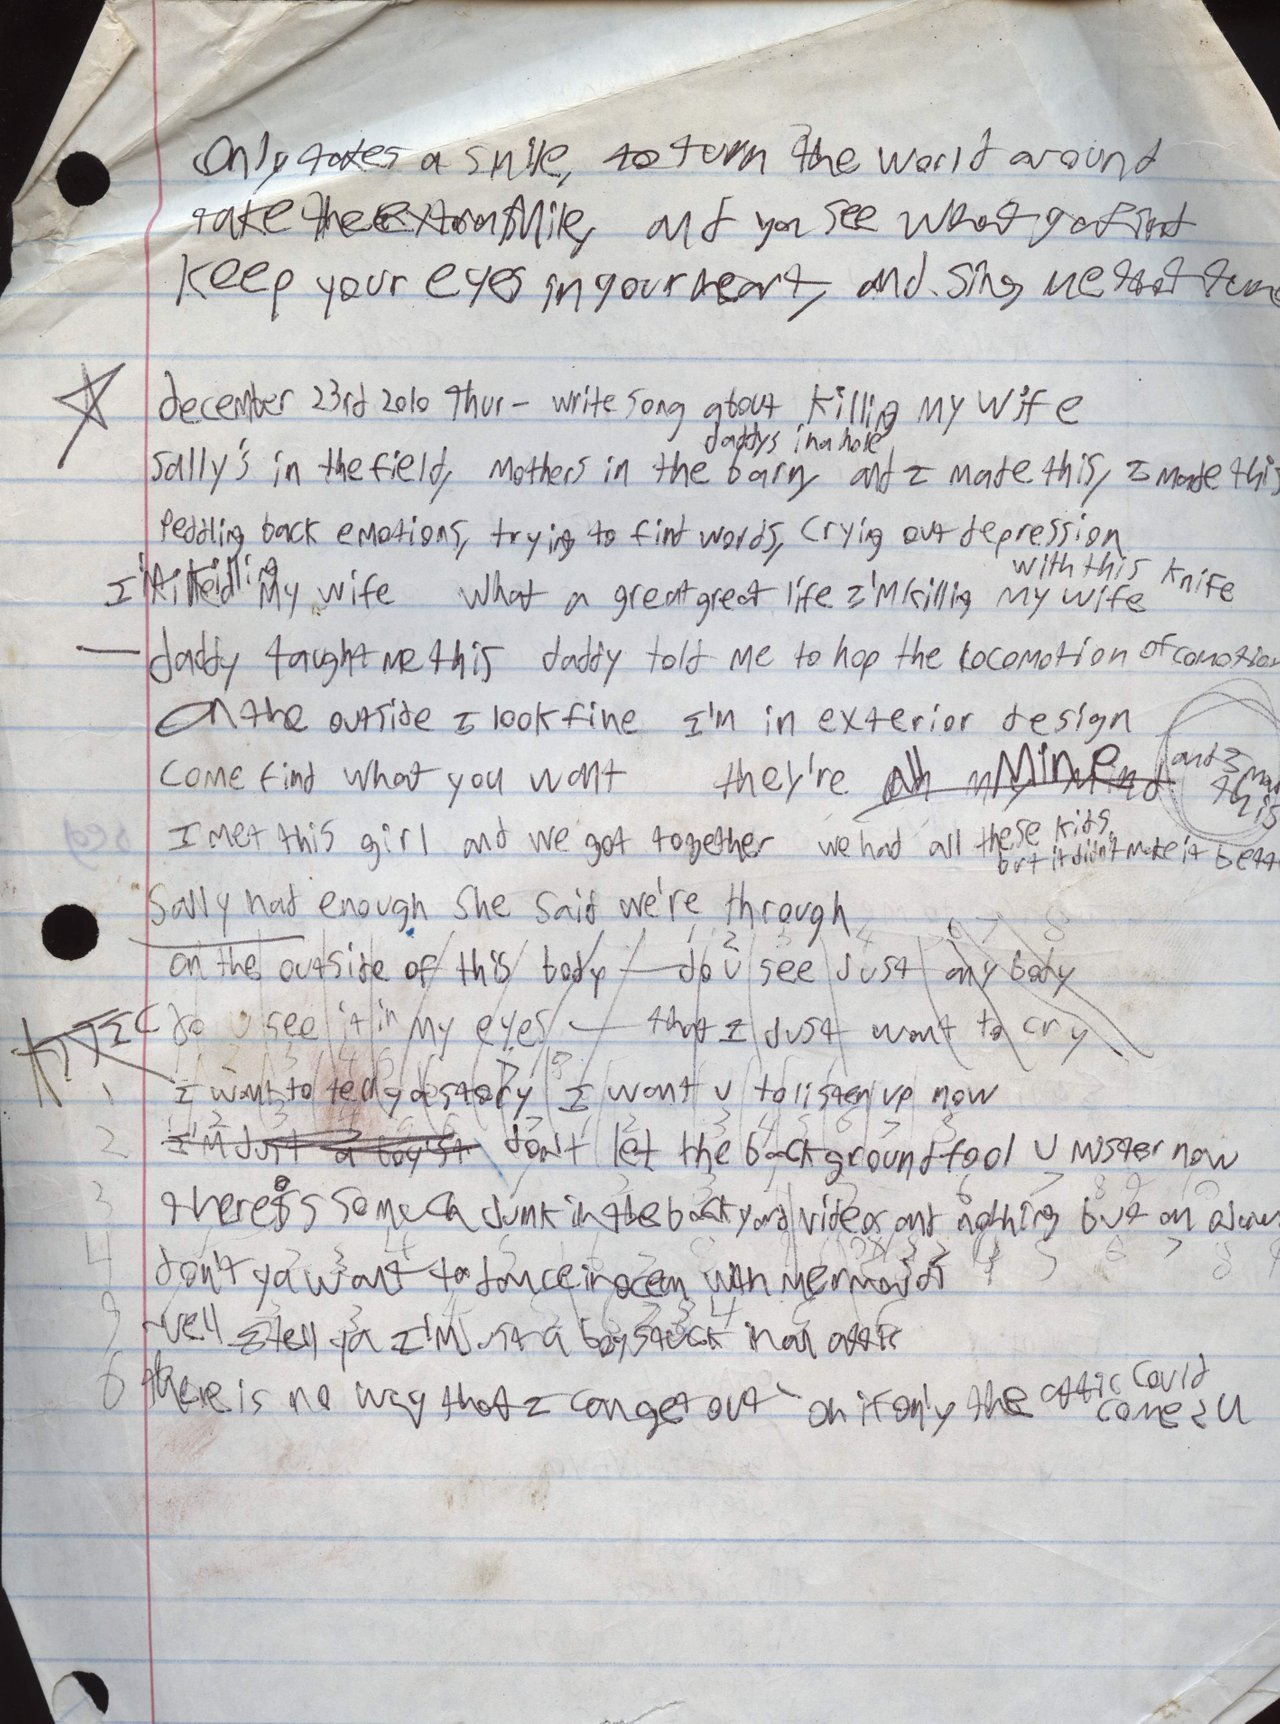 Only takes a smile, to turn the world around
take the extra mile, and you see what
Keep your eyes in your heart, and sing me that tune
december 23rd 2010 thur - write song about killing my wife
daddys in a hole
Sally's in the field, mothers in the barn, and I made this, I made this
Peddling back emotions, trying to find words, Crying out depression
I'm killing my wife what a great great life I'm killing my wife with this knife
— daddy taught me this daddy told me to hop the locomotion of comotion
On the outside I look fine I'm in exterior design
Come find what you want they're all my Mine and I made this
I met this girl and we got together we had all these kids, but it didn't make it bett
Sally had enough She Said we're through
on the outside of this body — do U see Just any body
ATTIC do U see it in my eyes — that I Just want to cry
1 I want to tell ya story I want U to listen up now
2 I'm Just a boy st don't let the background fool U mister now
3 there is so much Junk in the backyard video and nothing but an
4 don't ya want to dance in ocean with mermaids
5 well I tell ya I'm Just a boy stuck in an attic
6 there is no way that I can get out oh if only the attic could come 2 U